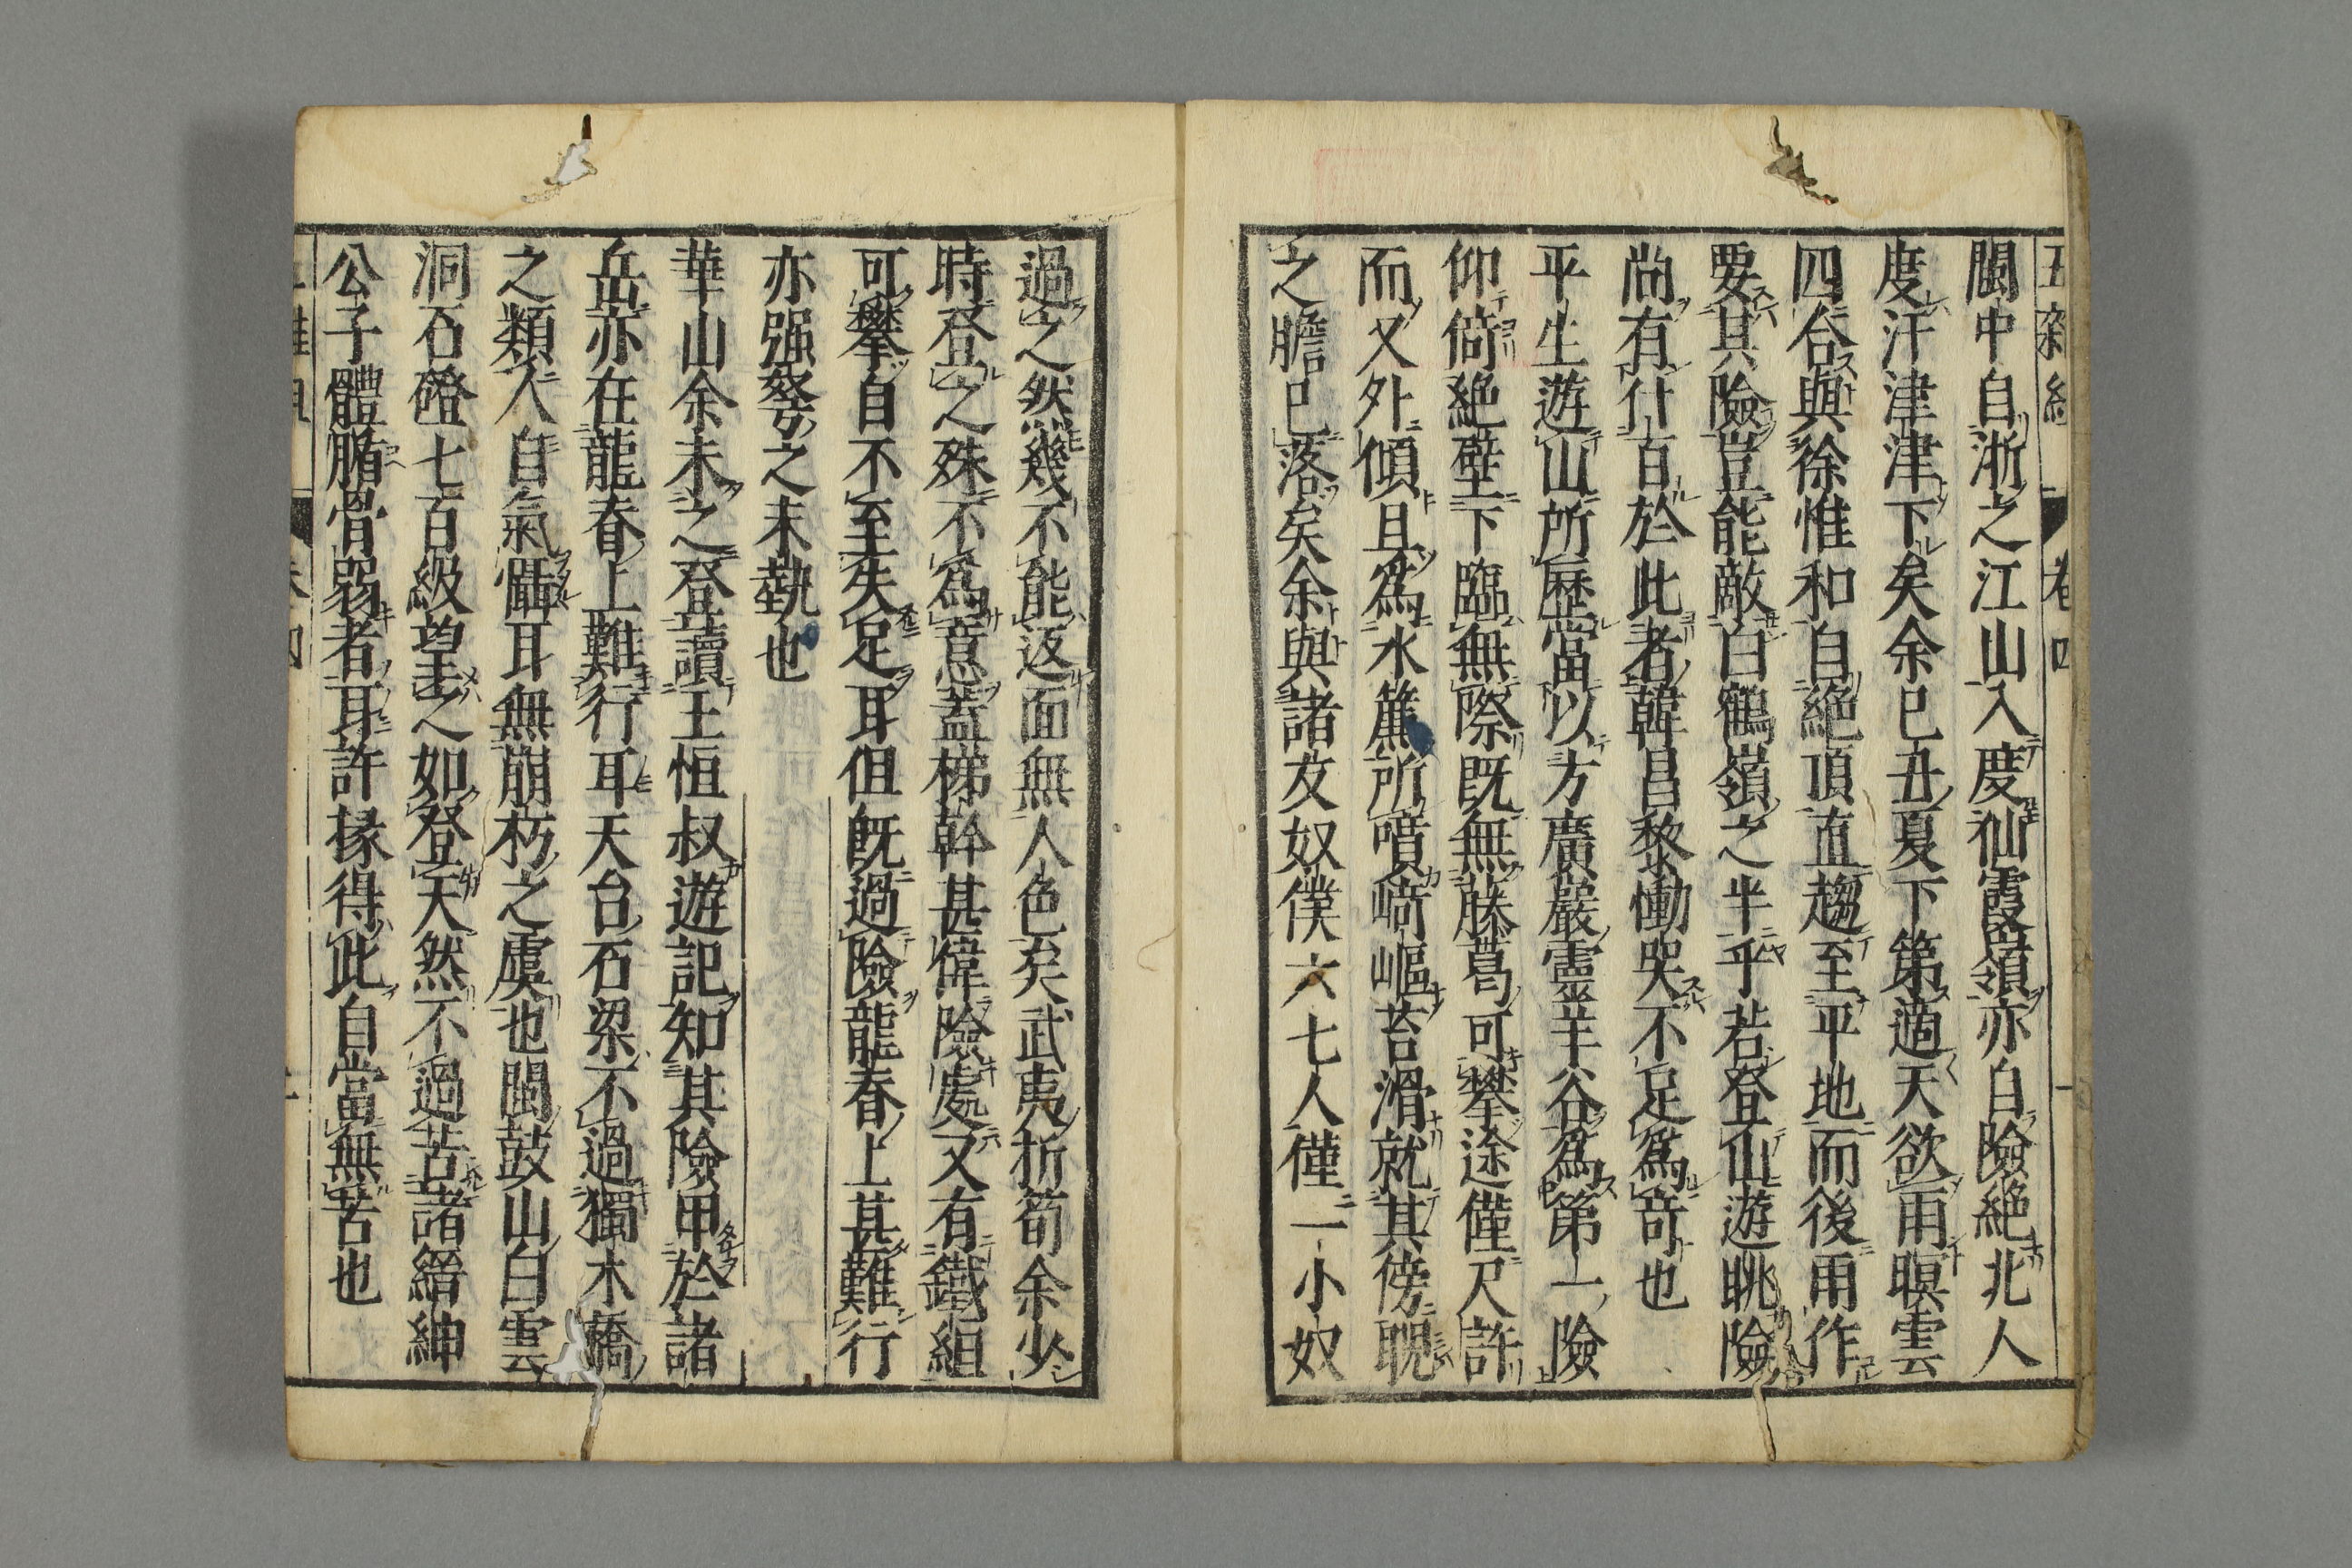 五雜組 卷四
閩中自浙之江山入度仙霞嶺亦自險絶北人
度汗津津下矣余己丑夏下第適天欲雨暝雲
四合與徐惟和自絶頂直趨至平地而後雨作
要其險豈能敵白鶴嶺之半乎若登山遊眺險
尚有什百於此者韓昌黎慟哭不足爲竒也
平生遊山所歷當以方廣巖靈羊谷爲第一險
仰倚絶壁下臨無際既無藤葛可攀途僅尺許
而又外傾且爲水簾所噴﨑嶇苔滑就其傍睨
之膽已落矣余與諸友奴僕六七人僅一小奴
過之然幾不能返面無人色矣武夷折筍余少
時登之殊不爲意蓋梯幹甚偉險處又有鐵組
可攀自不至失足耳但既過險龍脊上甚難行
亦强弩之末勢也
華山余未之登讀王恒叔遊記知其險甲於諸
岳亦在龍脊上難行耳天台石梁不過獨木橋
之類人自氣懾耳無崩朽之虞也閩鼓山白雲
洞石磴七百級望之如登天然不過苦諸縉紳
公子體腯骨弱者耳許掾得此自當無苦也
卷四